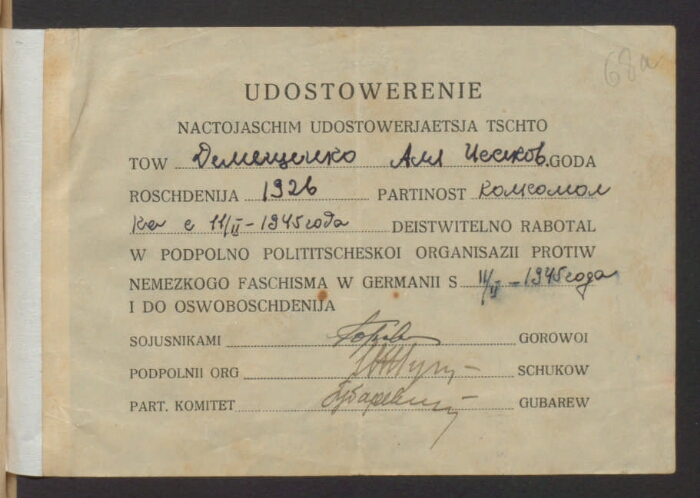 68a
UDOSTOWERENIE
NACTOJASCHIM UDOSTOWERJAETSJA TSCHTO
TOW Демещенко GODA
ROSCHDENIJA 1926 PARTINOST Комсомол
ка с 11/II-1945 года DEISTWITELNO RABOTAL
W PODPOLNO POLITITSCHESKOI ORGANISAZII PROTIW
NEMEZKOGO FASCHISMA W GERMANII S 11/II-1945 года
I DO OSWOBOSCHDENIJA
SOJUSNIKAMI GOROWOI
PODPOLNII ORG SCHUKOW
PART. KOMITET GUBAREW